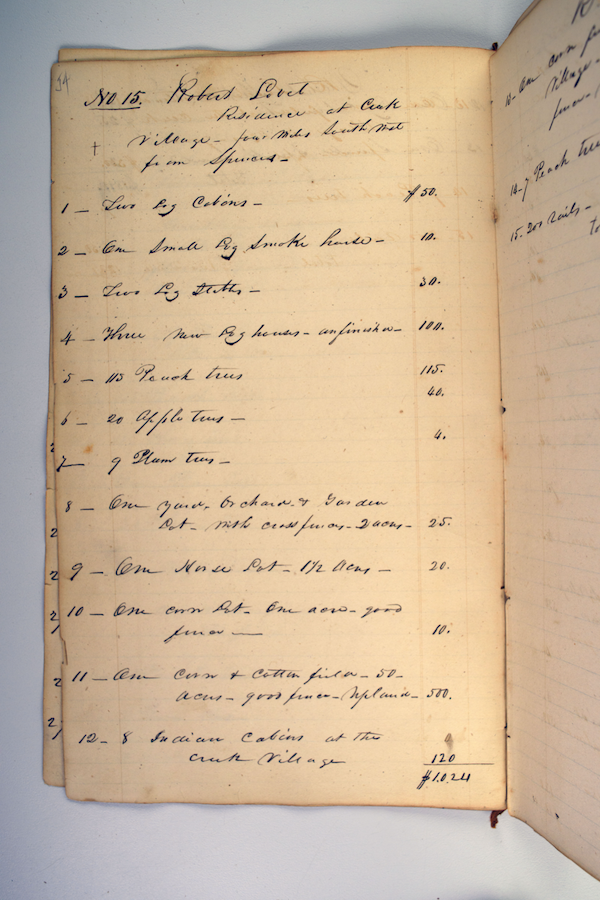 14
No 15. Robert Lovet
Residence at Creek
+ Village - four miles South West
from Spencers -
1 - Two Log Cabins - $50.
2 - One Small Log Smoke house - 10.
3 - Two Log Stables - 30.
4 - Three New Log houses - unfinished - 100.
5 - 115 Peach trees 115.
6 - 20 Apple trees - 40.
7 - 9 Plum trees - 4.
8 - One yard, Orchard & Garden
Lot - with cross fences - 2 acres - 25.
9 - One Horse Lot - 1 1/2 Acres - 20.
10 - One corn Lot - One acre - good
fence - 10.
11 - One corn & Cotton field - 50 -
Acres - good fence - Upland - 500.
12 - 8 Indian Cabins at the
Creek Village 120
$1.024
10- One corn
Village -
fence -
14 - 7 Peach trees
15. 200 rails -